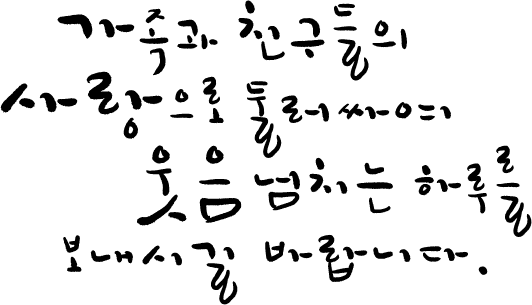 가족과 친구들의
사랑으로 둘러싸이는
웃음 넘치는 하루를
보내시길 바랍니다.